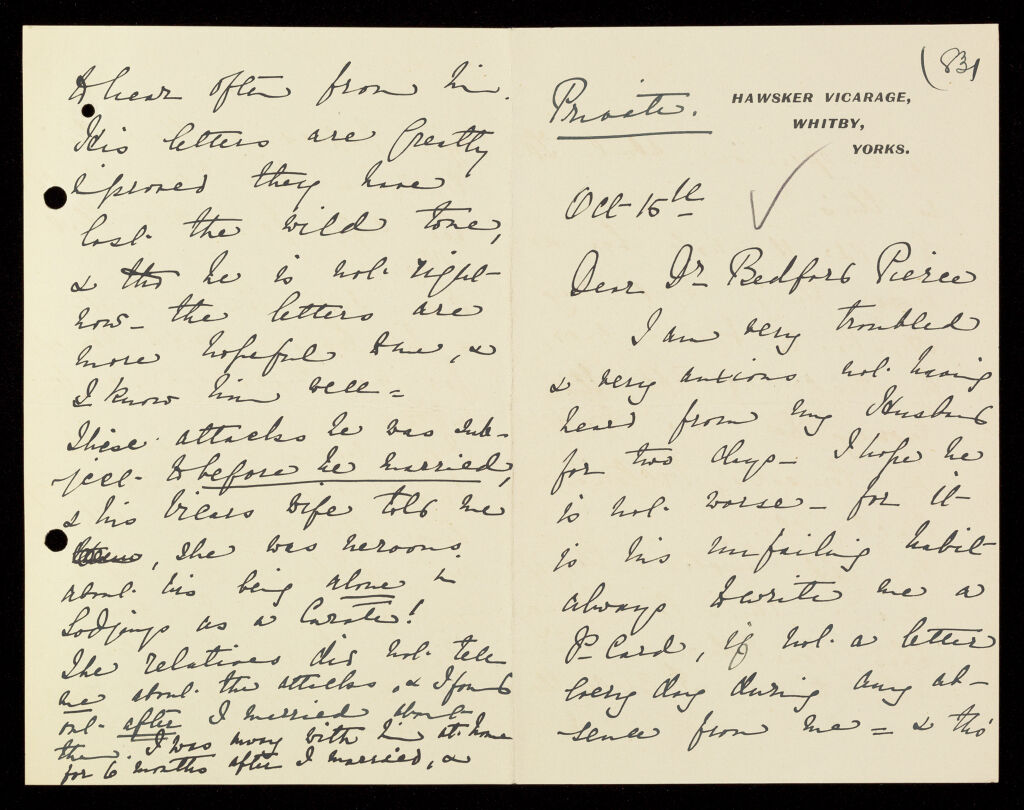 (83)
Private.
HAWSKER VICARAGE,
WHITBY,
YORKS.
Oct 15th
Dear Dr Bedford Pierce
I am very troubled
& very anxious not having
heard from my Husband
for two days - I hope he
is not worse - for it
is his unfailing habit
always to write me a
P-Card, if not a letter
every day during any ab-
sence from me = & tho'
to hear often from him.
His letters are greatly
improved they have
lost the wild tone,
& tho he is not right
now - the letters are
more hopeful tone, &
I know him well =
These attacks he was sub-
ject to before he married,
& his Vicars wife told me
, she was nervous
about his being alone in
Lodgings as a Curate!
The relatives did not tell
me about the attacks, & I found
out after I married about
them. I was away with him at home
for 6 months after I married, &